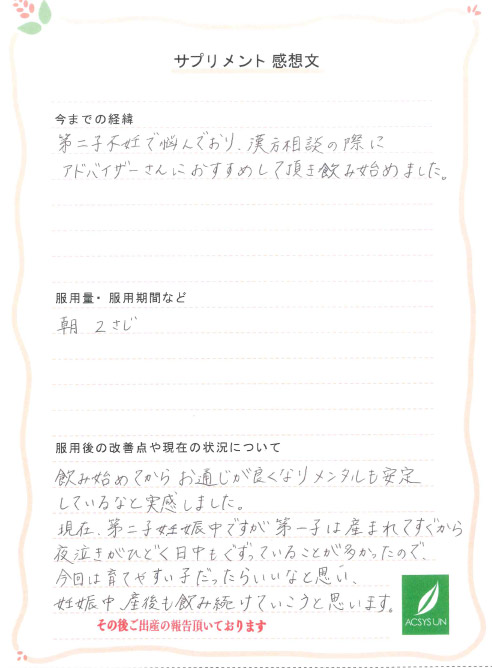 サプリメント 感想文
今までの経緯
第二子不妊で悩んでおり、漢方相談の際に
アドバイザーさんにおすすめして頂き飲み始めました。
服用量・服用期間など
朝 2さじ
服用後の改善点や現在の状況について
飲み始めてからお通じが良くなりメンタルも安定
しているなと実感しました。
現在、第二子妊娠中ですが第一子は産まれてすぐから
夜泣きがひどく日中もぐずっていることが多かったので、
今回は育てやすい子だったらいいなと思い、
妊娠中、産後も飲み続けていこうと思います。
その後ご出産の報告頂いております
ACSYS UN